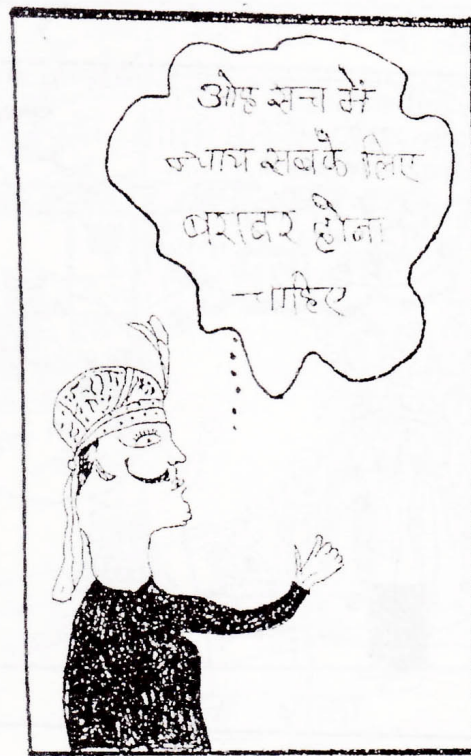 ओह सच में
न्याय सबके लिए
बराबर होना
चाहिए